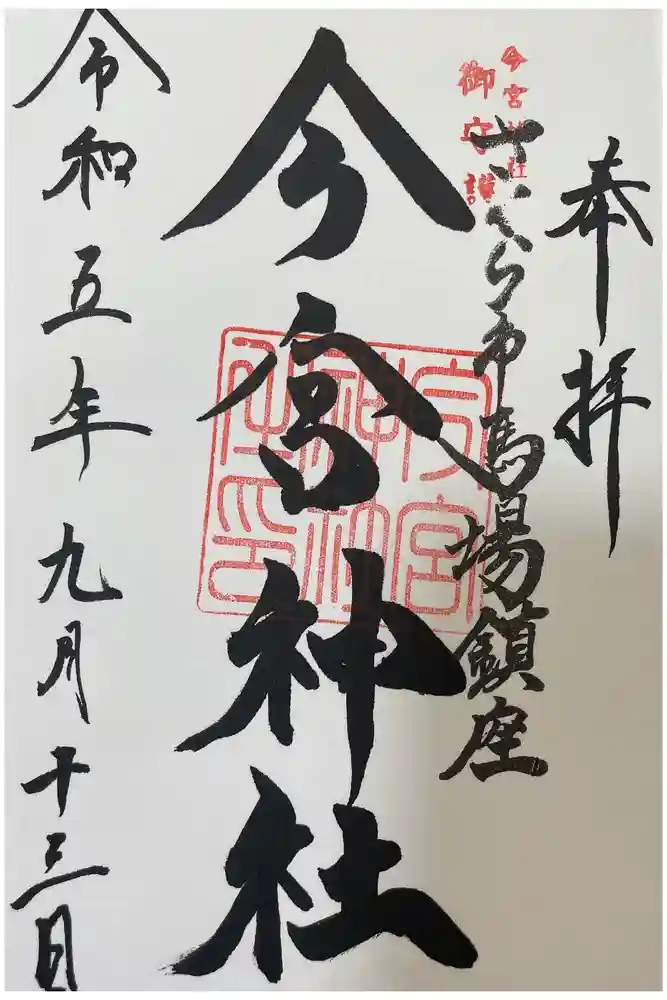 奉拝
今宮神社
御守護
さくら市馬場鎮座
今宮神社
今宮神社之印
令和五年九月十三日